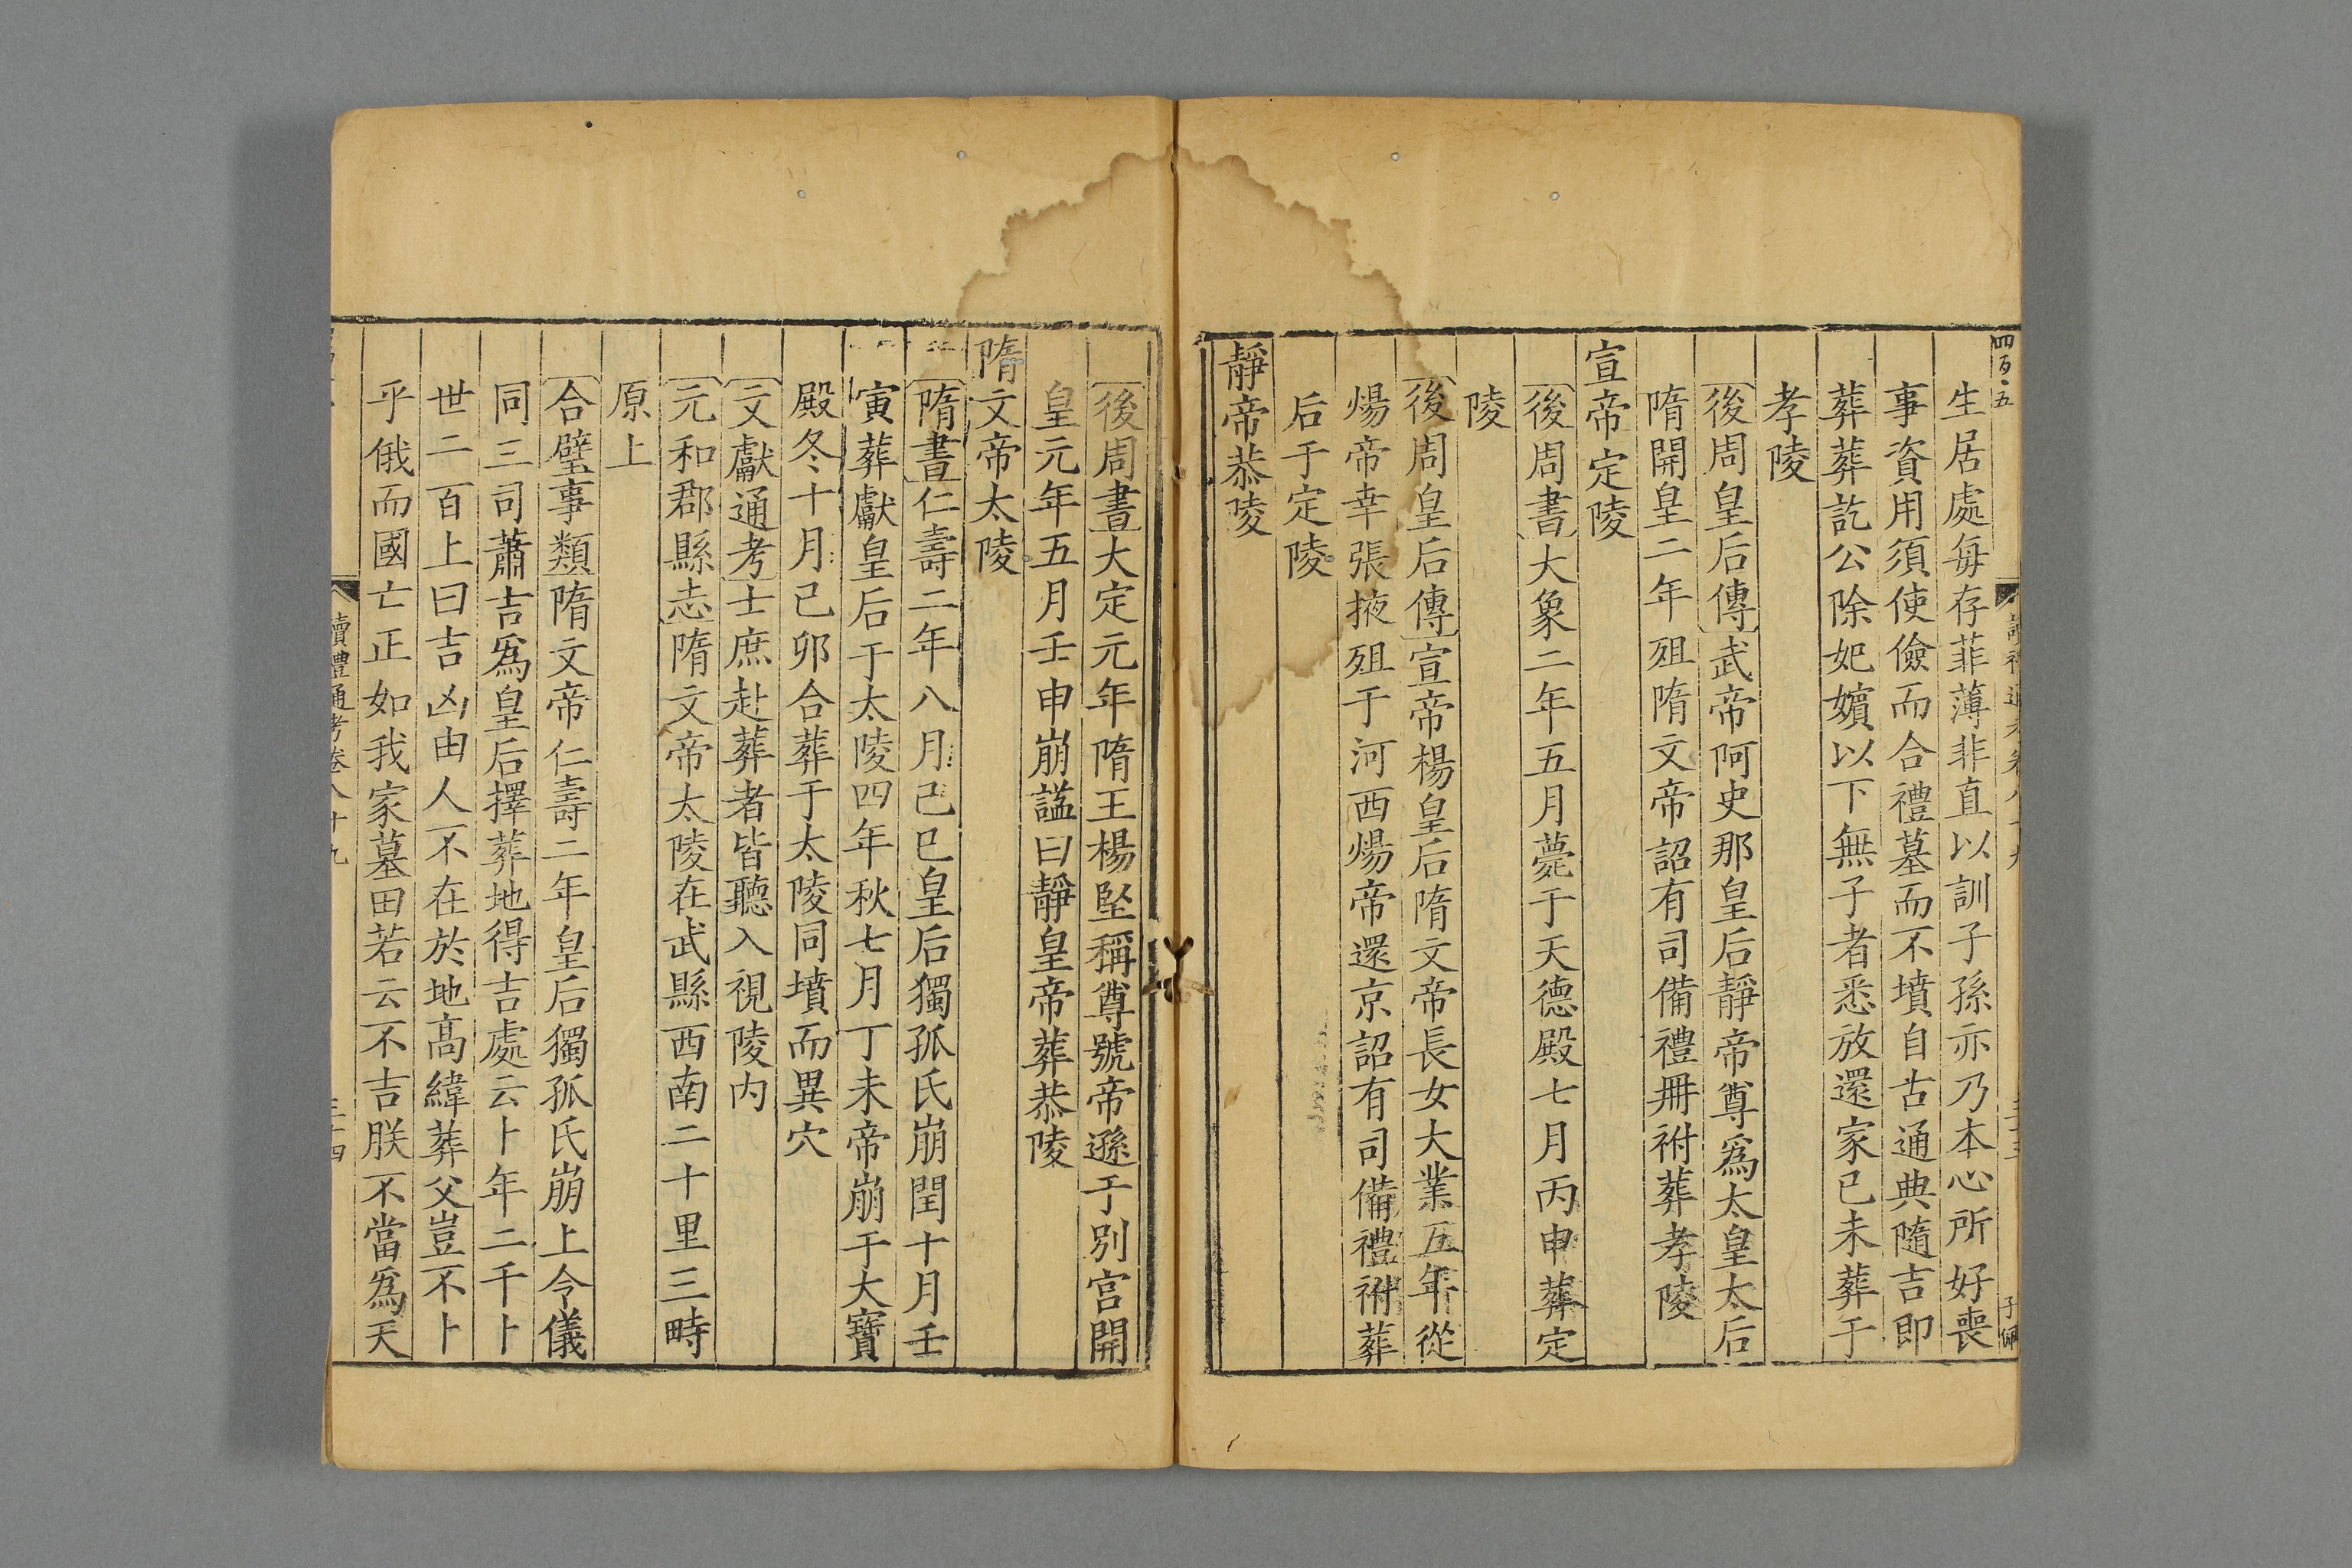 四百〇五
子佩
生居處每存菲薄非直以訓子孫亦乃本心所好喪
事資用須使儉而合禮墓而不墳自古通典隨吉即
葬葬訖公除妃嬪以下無子者悉放還家已未葬于
孝陵
後周皇后傳武帝阿史那皇后靜帝尊爲太皇太后
隋開皇二年殂隋文帝詔有司備禮冊祔葬孝陵
宣帝定陵
後周書大象二年五月薨于天德殿七月丙申葬定
陵
後周皇后傳宣帝楊皇后隋文帝長女大業五年從
煬帝幸張掖殂于河西煬帝還京詔有司備禮祔葬
后于定陵
靜帝恭陵
後周書大定元年隋王楊堅稱尊號帝遜于別宮開
皇元年五月壬申崩諡曰靜皇帝葬恭陵
隋文帝太陵
隋書仁壽二年八月己巳皇后獨孤氏崩閏十月壬
寅葬獻皇后于太陵四年秋七月丁未帝崩于大寶
殿冬十月己卯合葬于太陵同墳而異穴
文獻通考士庶赴葬者皆聽入視陵内
元和郡縣志隋文帝太陵在武縣西南二十里三畤
原上
合璧事類隋文帝仁壽二年皇后獨孤氏崩上令儀
同三司蕭吉爲皇后擇葬地得吉處云卜年二千卜
世二百上曰吉凶由人不在於地高緯葬父豈不卜
乎俄而國亡正如我家墓田若云不吉朕不當爲天
讀禮通考卷八十九